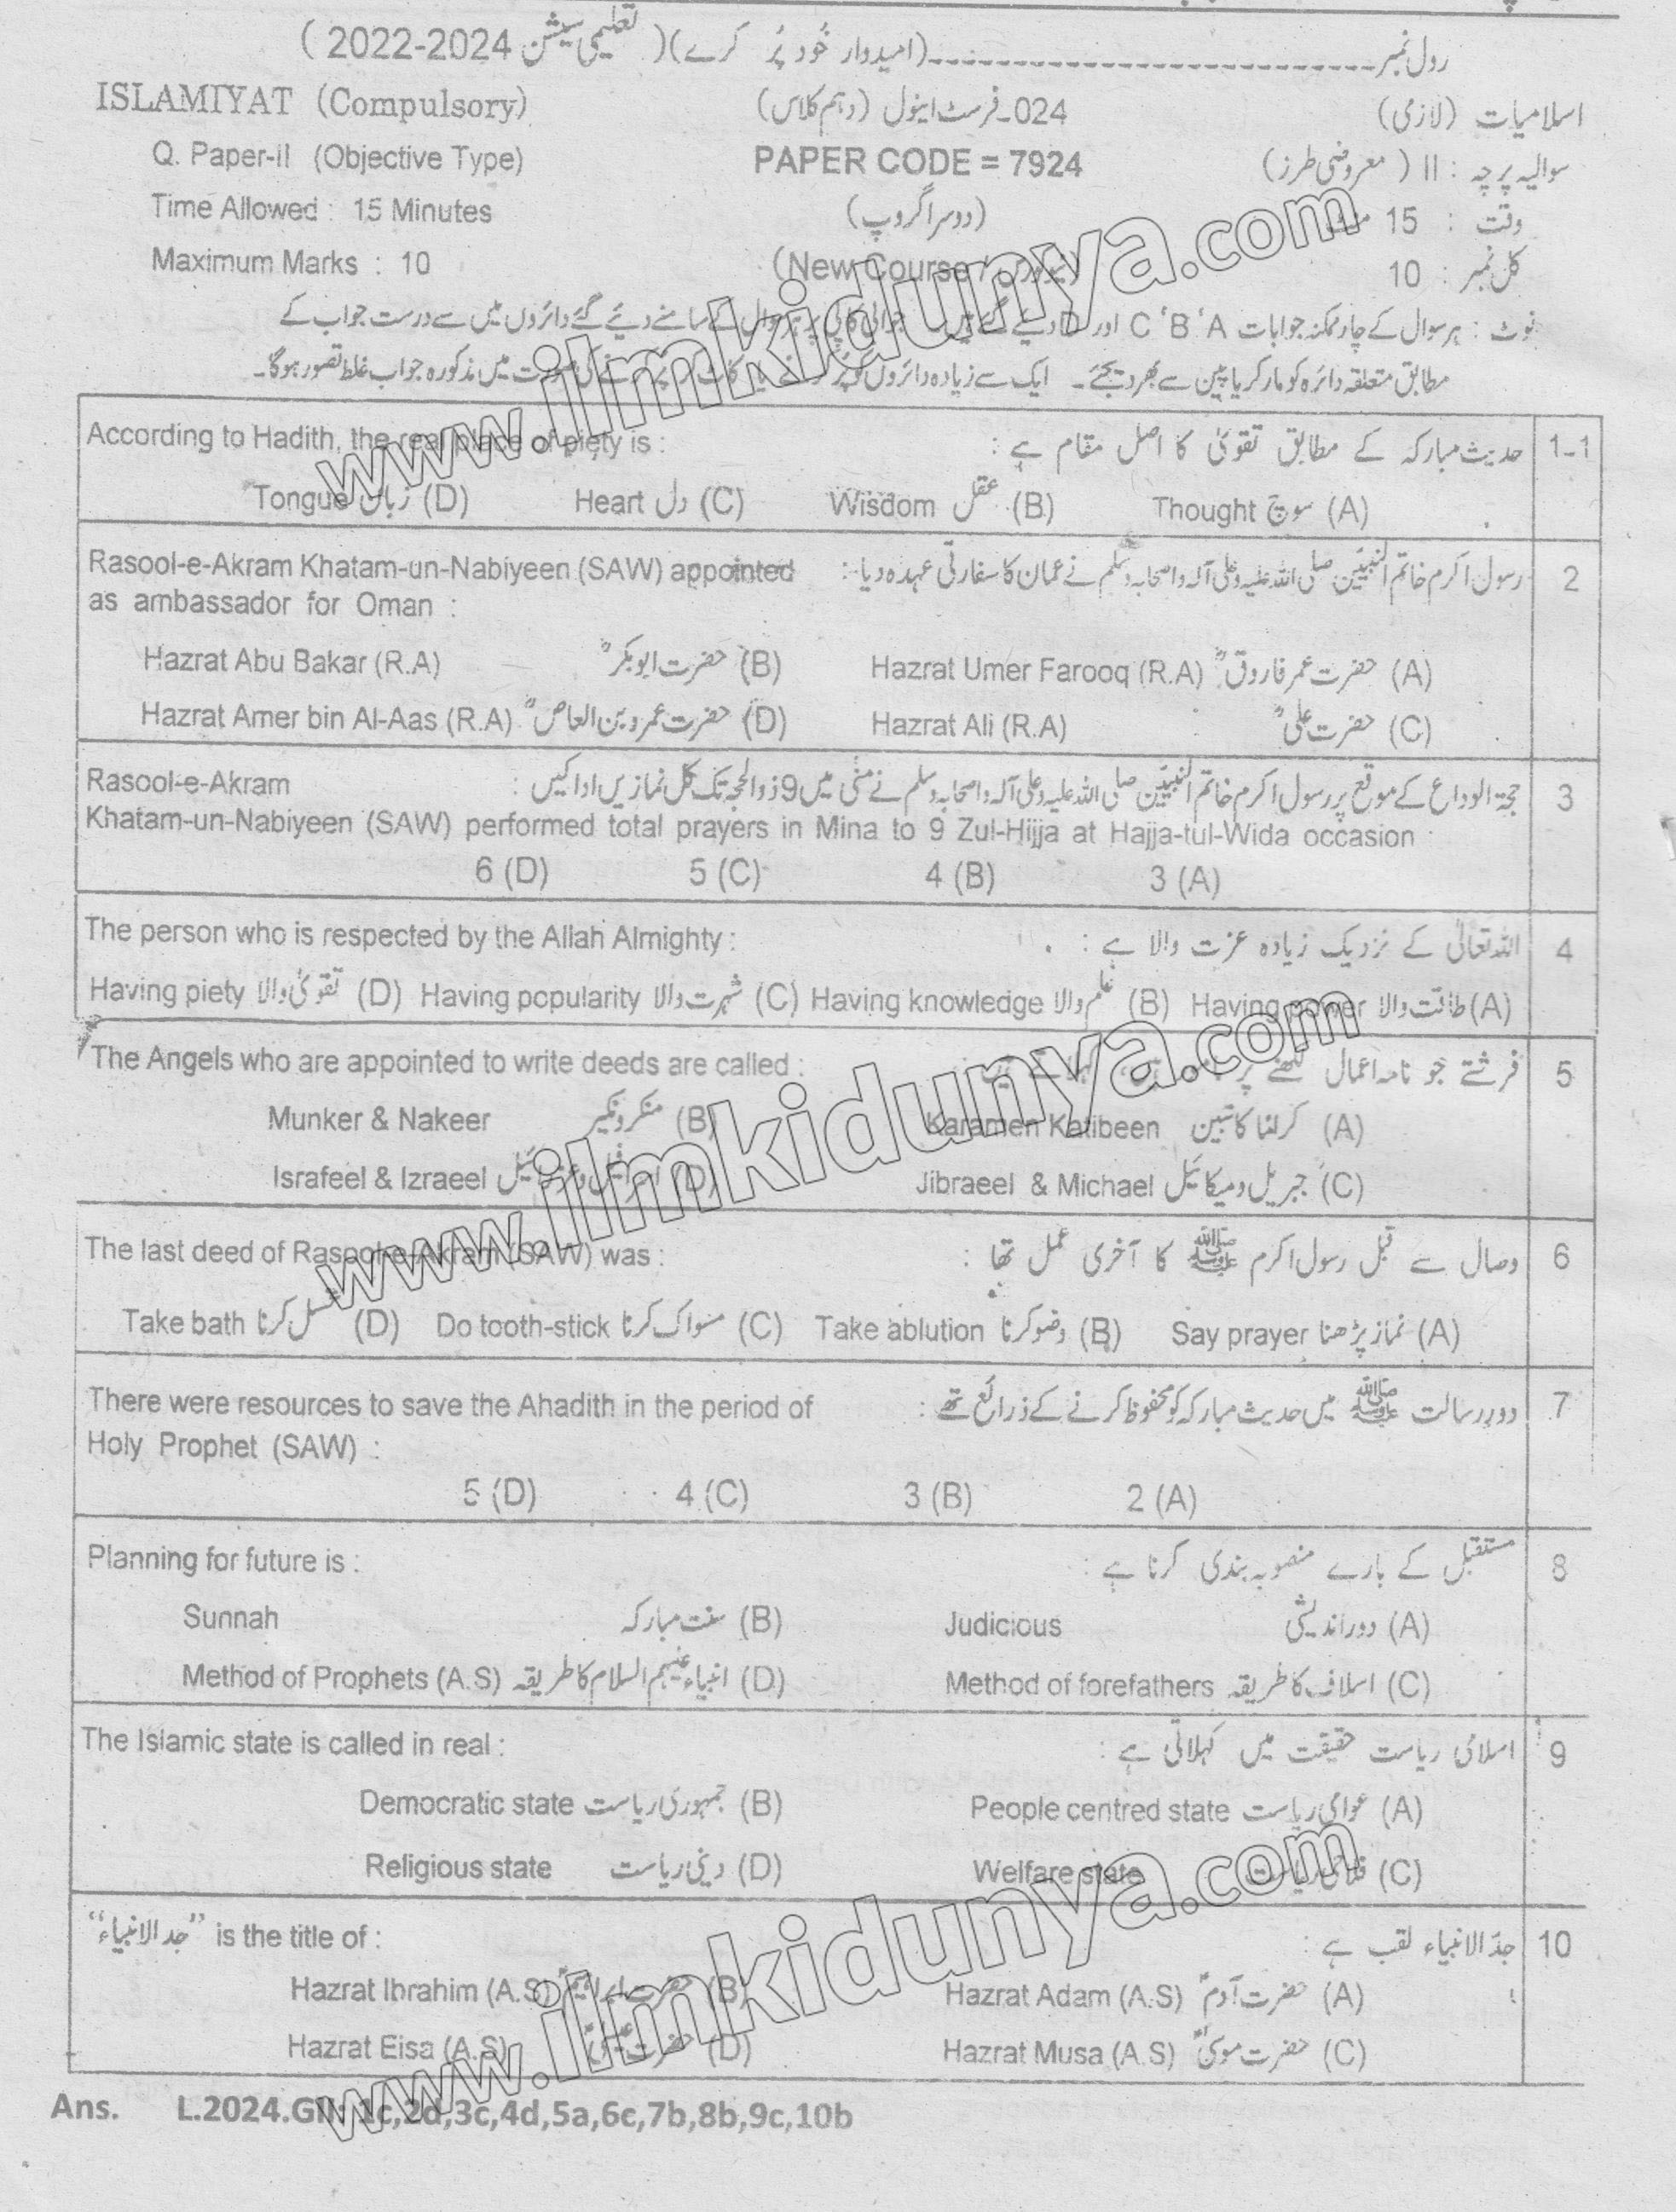 رول نمبر ---------------------------(امیدوار خُود پُر کرے)( تعلیمی سیشن 2022-2024 )
ISLAMIYAT (Compulsory) 024۔فرسٹ اینول (دہم کلاس) اسلامیات (لازمی)
Q. Paper-II (Objective Type) PAPER CODE = 7924 سوالیہ پرچہ : II ( معروضی طرز)
Time Allowed : 15 Minutes (دوسرا گروپ) وقت : 15 منٹ
Maximum Marks : 10 (New Course / کل نمبر : 10
نوٹ : ہر سوال کے چار ممکنہ جوابات A ' B ' C اور D دیئے گئے ہیں۔ جوابی کاپی پر ہر سوال کے سامنے دیئے گئے دائروں میں سے درست جواب کے
مطابق متعلقہ دائرہ کو مارکر یا پین سے بھر دیجئے۔ ایک سے زیادہ دائروں کو پُر کرنے یا کاٹ کر پُر کرنے کی صورت میں مذکورہ جواب غلط تصور ہوگا۔
According to Hadith, the real place of piety is : حدیث مبارکہ کے مطابق تقویٰ کا اصل مقام ہے : 1-1
Tongue زبان (D) Heart دل (C) Wisdom عقل (B) Thought سوچ (A)
Rasool-e-Akram Khatam-un-Nabiyeen (SAW) appointed رسول اکرم خاتم النبیّین صلی اللہ علیہ وعلی آلہ واصحابہ وسلم نے عمان کا سفارتی عہدہ دیا: 2
as ambassador for Oman :
Hazrat Abu Bakar (R.A) حضرت ابوبکرؓ (B) Hazrat Umer Farooq (R.A) حضرت عمر فاروقؓ (A)
Hazrat Amer bin Al-Aas (R.A) حضرت عمرو بن العاصؓ (D) Hazrat Ali (R.A) حضرت علیؓ (C)
Rasool-e-Akram حجۃ الوداع کے موقع پر رسول اکرم خاتم النبیّین صلی اللہ علیہ وعلی آلہ واصحابہ وسلم نے منٰی میں 9 ذوالحجہ تک کل نمازیں ادا کیں : 3
Khatam-un-Nabiyeen (SAW) performed total prayers in Mina to 9 Zul-Hijja at Hajja-tul-Wida occasion :
6 (D) 5 (C) 4 (B) 3 (A)
The person who is respected by the Allah Almighty : اللہ تعالیٰ کے نزدیک زیادہ عزت والا ہے : 4
Having piety تقویٰ والا (D) Having popularity شہرت والا (C) Having knowledge علم والا (B) Having power طاقت والا (A)
The Angels who are appointed to write deeds are called : فرشتے جو نامہ اعمال لکھنے پر 5
Munker & Nakeer منکر ونکیر (B) Karamen Katibeen کراماً کاتبین (A)
Israfeel & Izraeel اسرافیل وعزرائیل (D) Jibraeel & Michael جبریل ومیکائیل (C)
The last deed of Rasool-e-Akram (SAW) was : وصال سے قبل رسول اکرم ﷺ کا آخری عمل تھا : 6
Take bath غسل کرنا (D) Do tooth-stick مسواک کرنا (C) Take ablution وضو کرنا (B) Say prayer نماز پڑھنا (A)
There were resources to save the Ahadith in the period of دورِ رسالت ﷺ میں حدیث مبارکہ کو محفوظ کرنے کے ذرائع تھے : 7
Holy Prophet (SAW) :
5 (D) 4 (C) 3 (B) 2 (A)
Planning for future is : مستقبل کے بارے منصوبہ بندی کرنا ہے : 8
Sunnah سنت مبارکہ (B) Judicious دور اندیشی (A)
Method of Prophets (A.S) انبیاء علیہم السلام کا طریقہ (D) Method of forefathers اسلاف کا طریقہ (C)
The Islamic state is called in real : اسلامی ریاست حقیقت میں کہلاتی ہے : 9
Democratic state جمہوری ریاست (B) People centred state عوامی ریاست (A)
Religious state دینی ریاست (D) Welfare state فلاحی ریاست (C)
”جد الانبیاء“ is the title of : جدّ الانبیاء لقب ہے : 10
Hazrat Ibrahim (A.S) حضرت ابراہیمؑ (B) Hazrat Adam (A.S) حضرت آدمؑ (A)
Hazrat Eisa (A.S) حضرت عیسیٰؑ (D) Hazrat Musa (A.S) حضرت موسیٰؑ (C)
Ans. L.2024.GII: 1c,2d,3c,4d,5a,6c,7b,8b,9c,10b
www.ilmkidunya.com
www.ilmkidunya.com
www.ilmkidunya.com